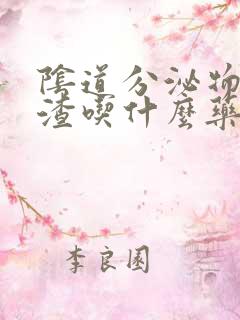 陰道分泌物
渣喫什麼藥
李良園